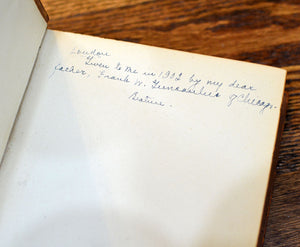 London
Given to me in 1922 by my dear
father, Frank W. Gunsaulus of Chicago.